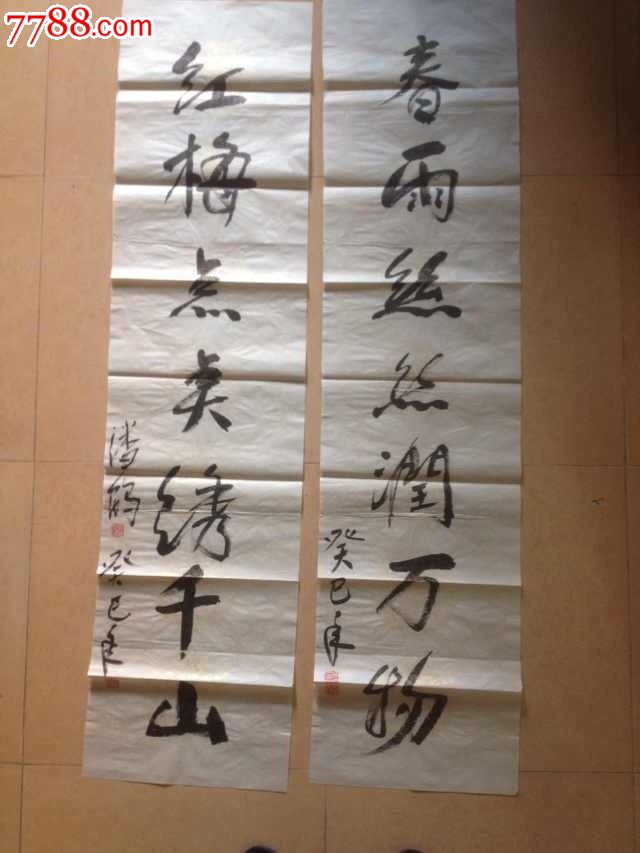 7788.com
春雨絲絲润万物
癸巳年
红梅点点绣千山
潘鹤
癸巳年